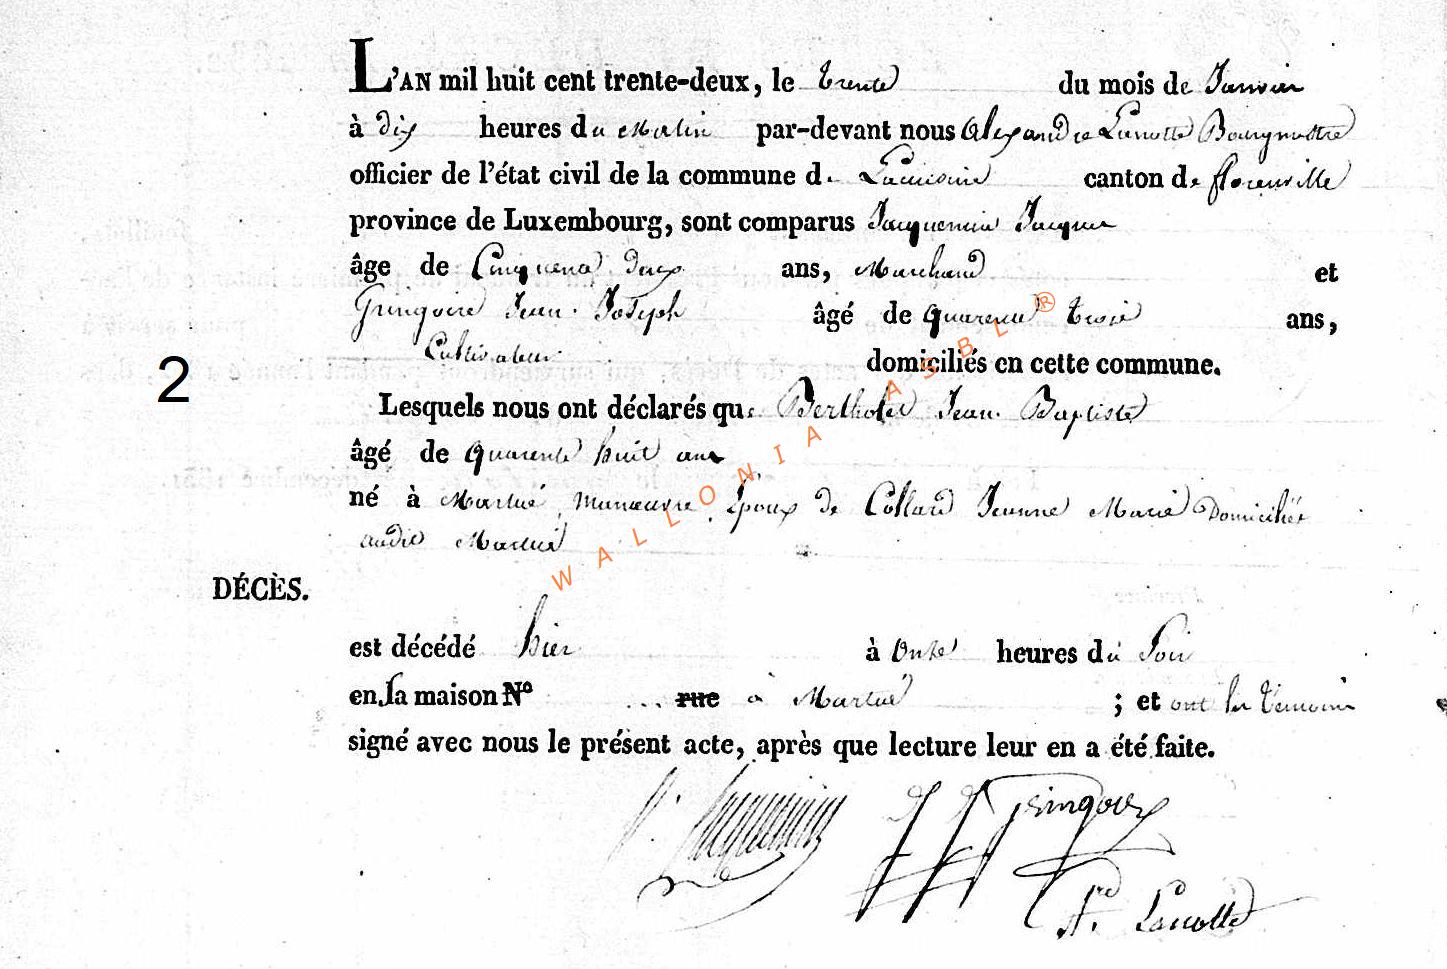 L'AN mil huit cent trente-deux, le trente du mois de Janvier
à dix heures du Matin par-devant nous Alexandre Lanotte Bourgmestre
officier de l'état civil de la commune de Lacuisine canton de florenville
province de Luxembourg, sont comparus Jacquemin Jacques
âge de Cinquente deux ans, Marchand et
Gringoire Jean Joseph âgé de quarente trois ans,
Cultivateur domiciliés en cette commune.
2
Lesquels nous ont déclarés que Bertholet Jean Baptiste
âgé de quarente huit ans
né à Martué, manoeuvre, Epoux de Collard Jeanne Marie Domiciliée
audit Martué
DÉCÈS.
est décédé hier à onze heures du Soir
en sa maison Nº ... rue à Martué ; et ont les témoins
signé avec nous le présent acte, après que lecture leur en a été faite.
Jacquemin J J Gringoire
Lanotte
WALLONIA ASBL ®